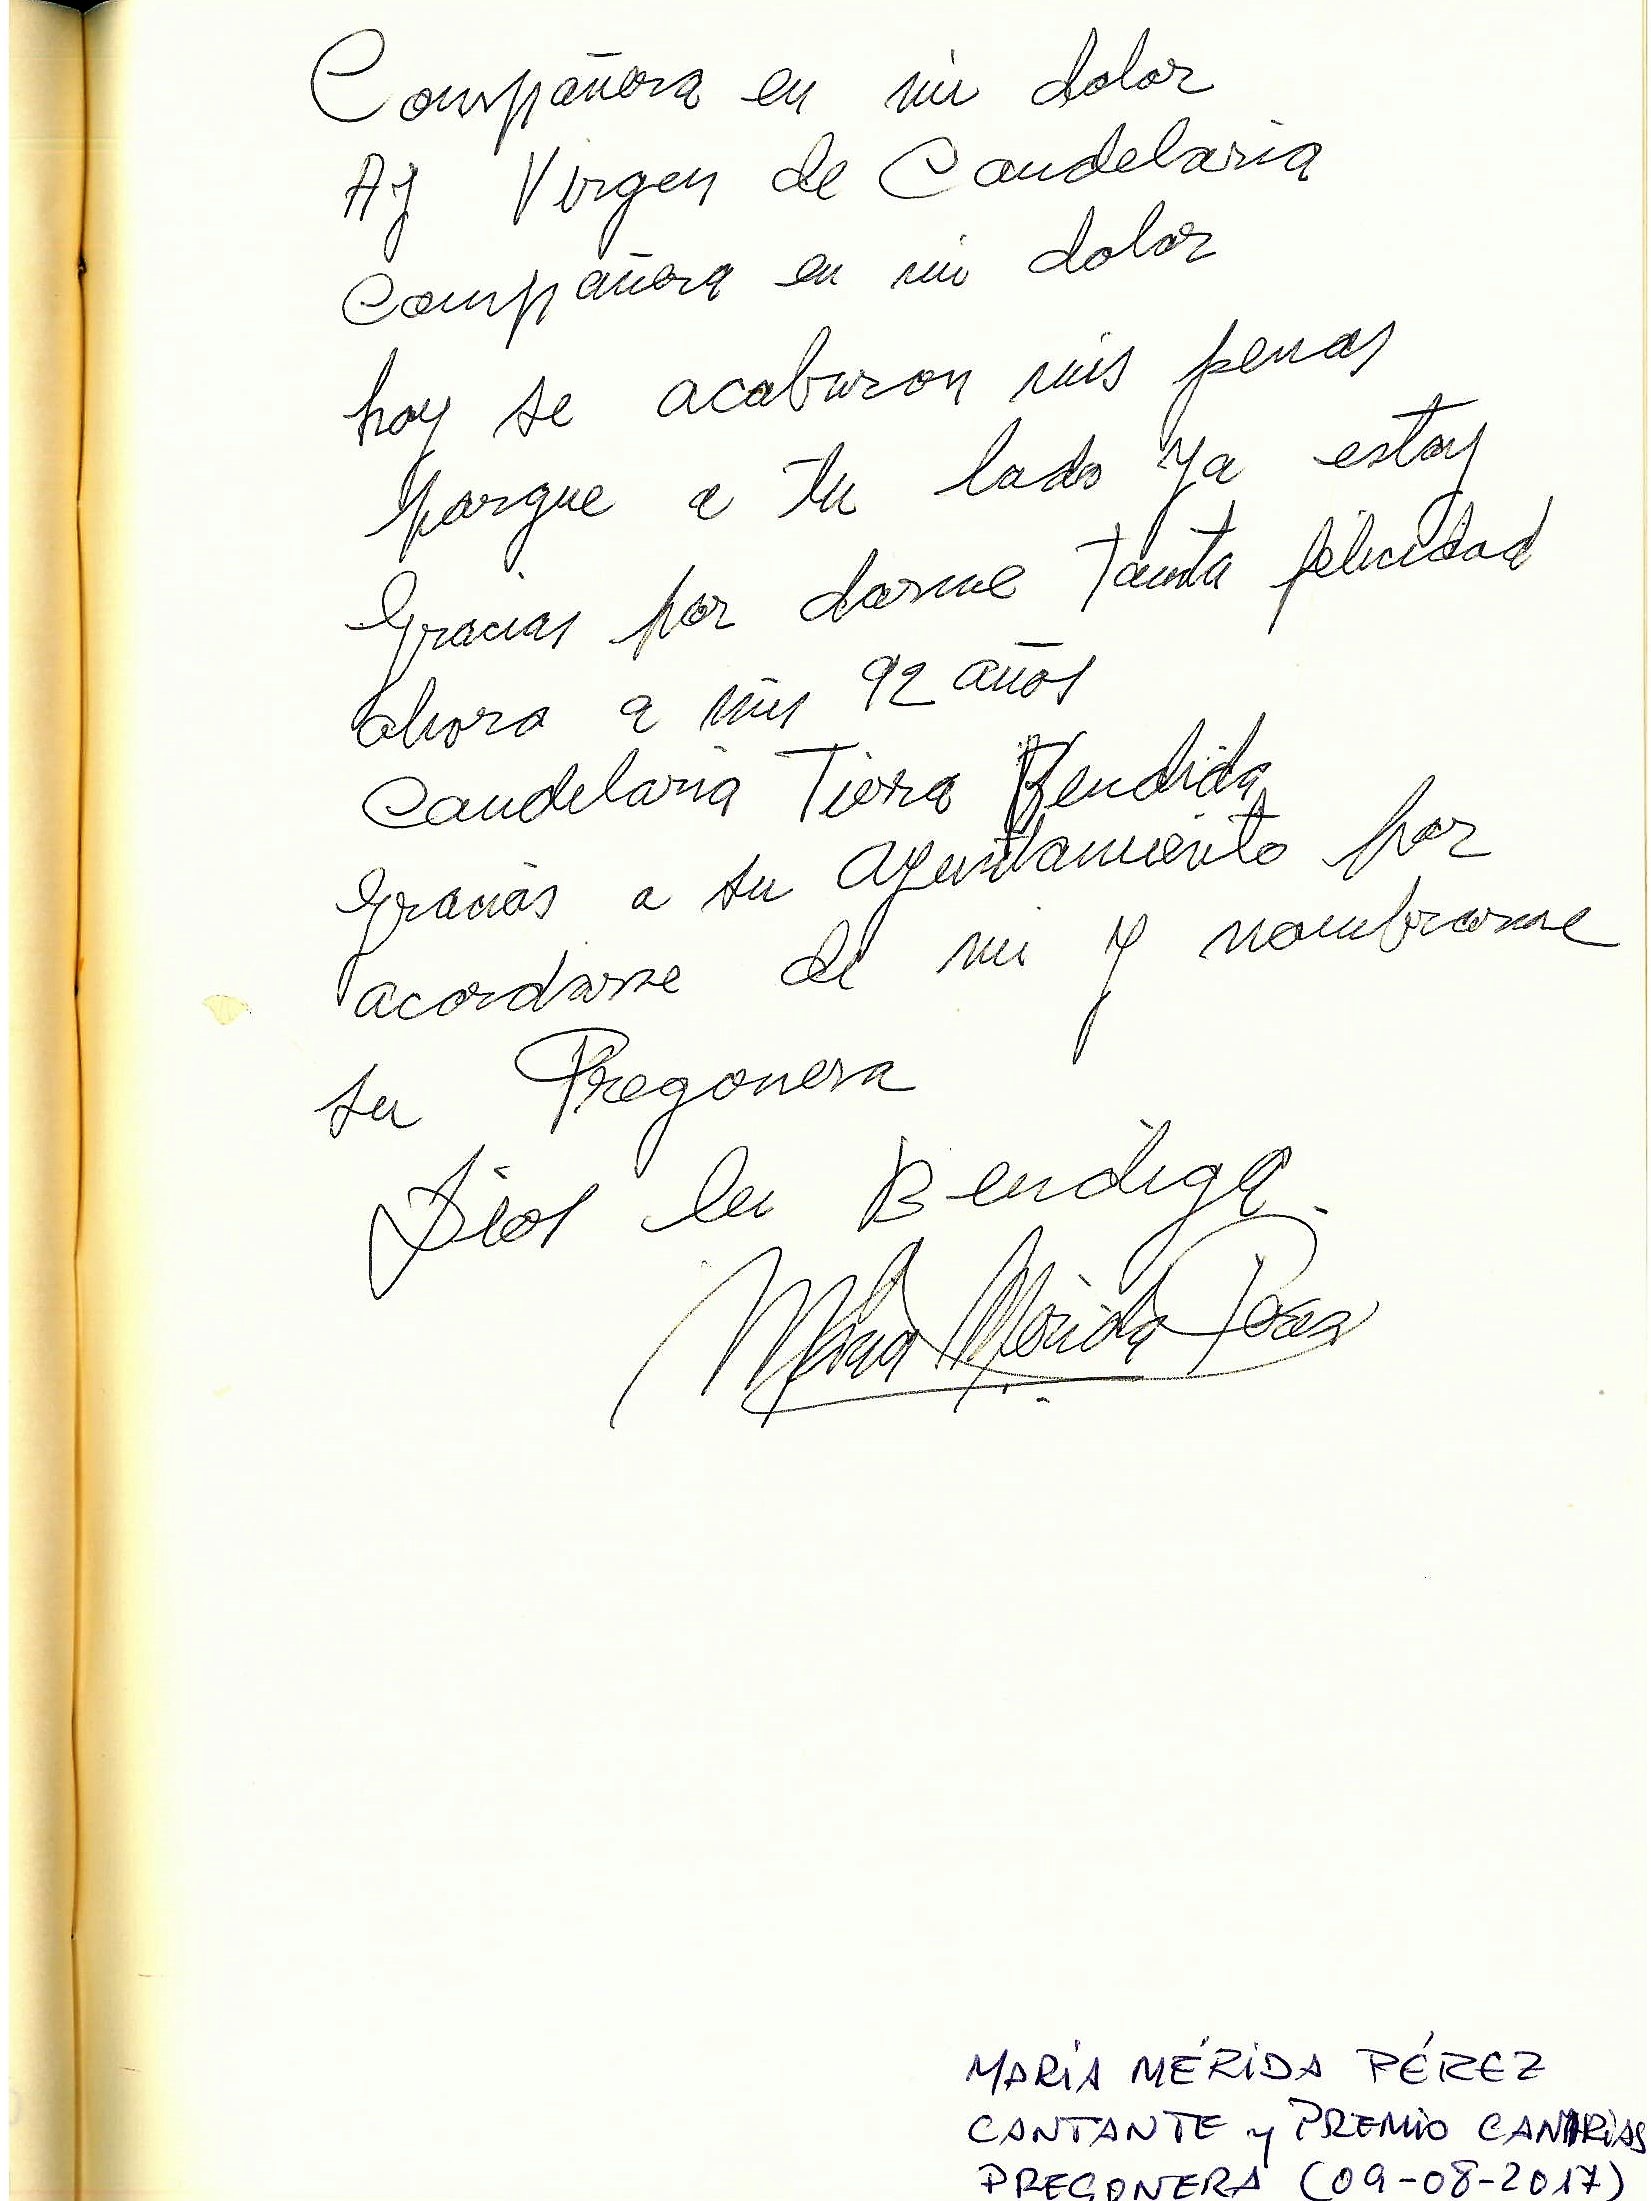 Compañera en mi dolor
Ay Virgen de Candelaria
Compañera en mi dolor
hoy se acabaron mis penas
porque a tu lado ya estoy
Gracias por darme Tanta felicidad
ahora a mis 92 años
Candelaria Tierra Bendida
gracias a su Ayuntamiento por
acordarse de mi y nombrarme
su Pregonera
Dios les Bendiga.
María Mérida Pérez
MARÍA MÉRIDA PÉREZ
CANTANTE y PREMIO CANARIAS
PREGONERA (09-08-2017)